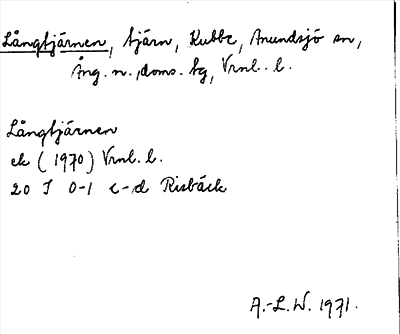 Långtjärnen, tjärn, Kubbe, Anundsjö sn,
Ång. n. doms. tg, Vrnl. l.
Långtjärnen
ek (1970) Vrnl. l.
20 I 0-1 c-d Risbäck
A.-L.W. 1971.